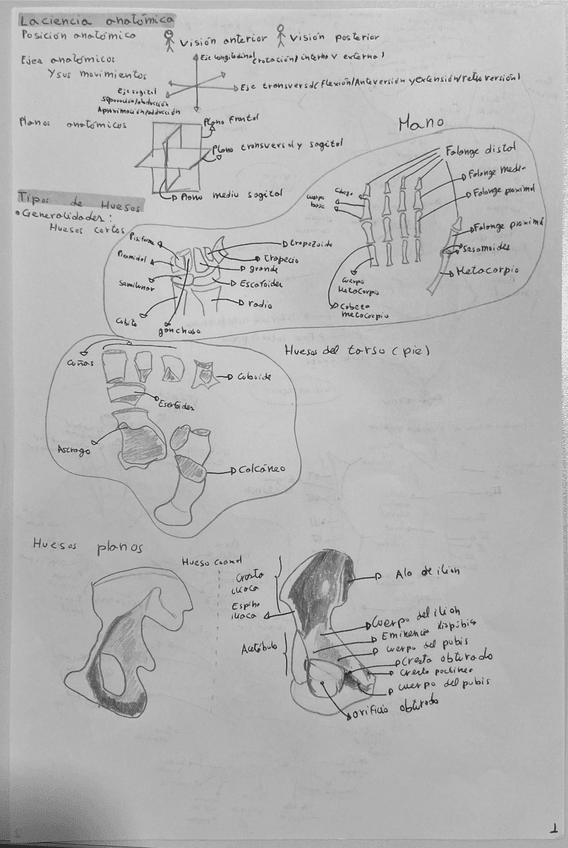 La ciencia anatómica
Posición anatómica
Visión anterior
Visión posterior
Ejes anatómicos
y sus movimientos
Eje longitudinal (rotación/interna y externa)
Eje transversal (Flexión/Anteversion y extensión/retroversión)
Eje sagital
separación/abducción
Aproximación/adducción
Planos anatómicos
Plano frontal
Plano transversal y sagital
Plano medio sagital
Mano
Falange distal
Falange media
Falange proximal
Cabeza
cuerpo
base
Falange proximal
Sesamoides
Metacarpio
cuerpo
Metacarpio
Cabeza
metacarpio
Tipos de Huesos
Generalidades:
Huesos cortos
Pisiforme
Piramidal
Semilunar
Cubito
ganchoso
trapezoide
trapecio
grande
Escafoides
radio
Huesos del tarso (pie)
Cuñas
Cuboide
Escafoides
Astrago
Calcáneo
Huesos planos
Hueso coxal
Cresta
iliaca
Espina
iliaca
Acetábulo
Ala de ilion
Cuerpo del ilion
Eminencia
cuerpo del pubis
Cresta obturado
Cresta pectinea
cuerpo del pubis
orificio obturado
1